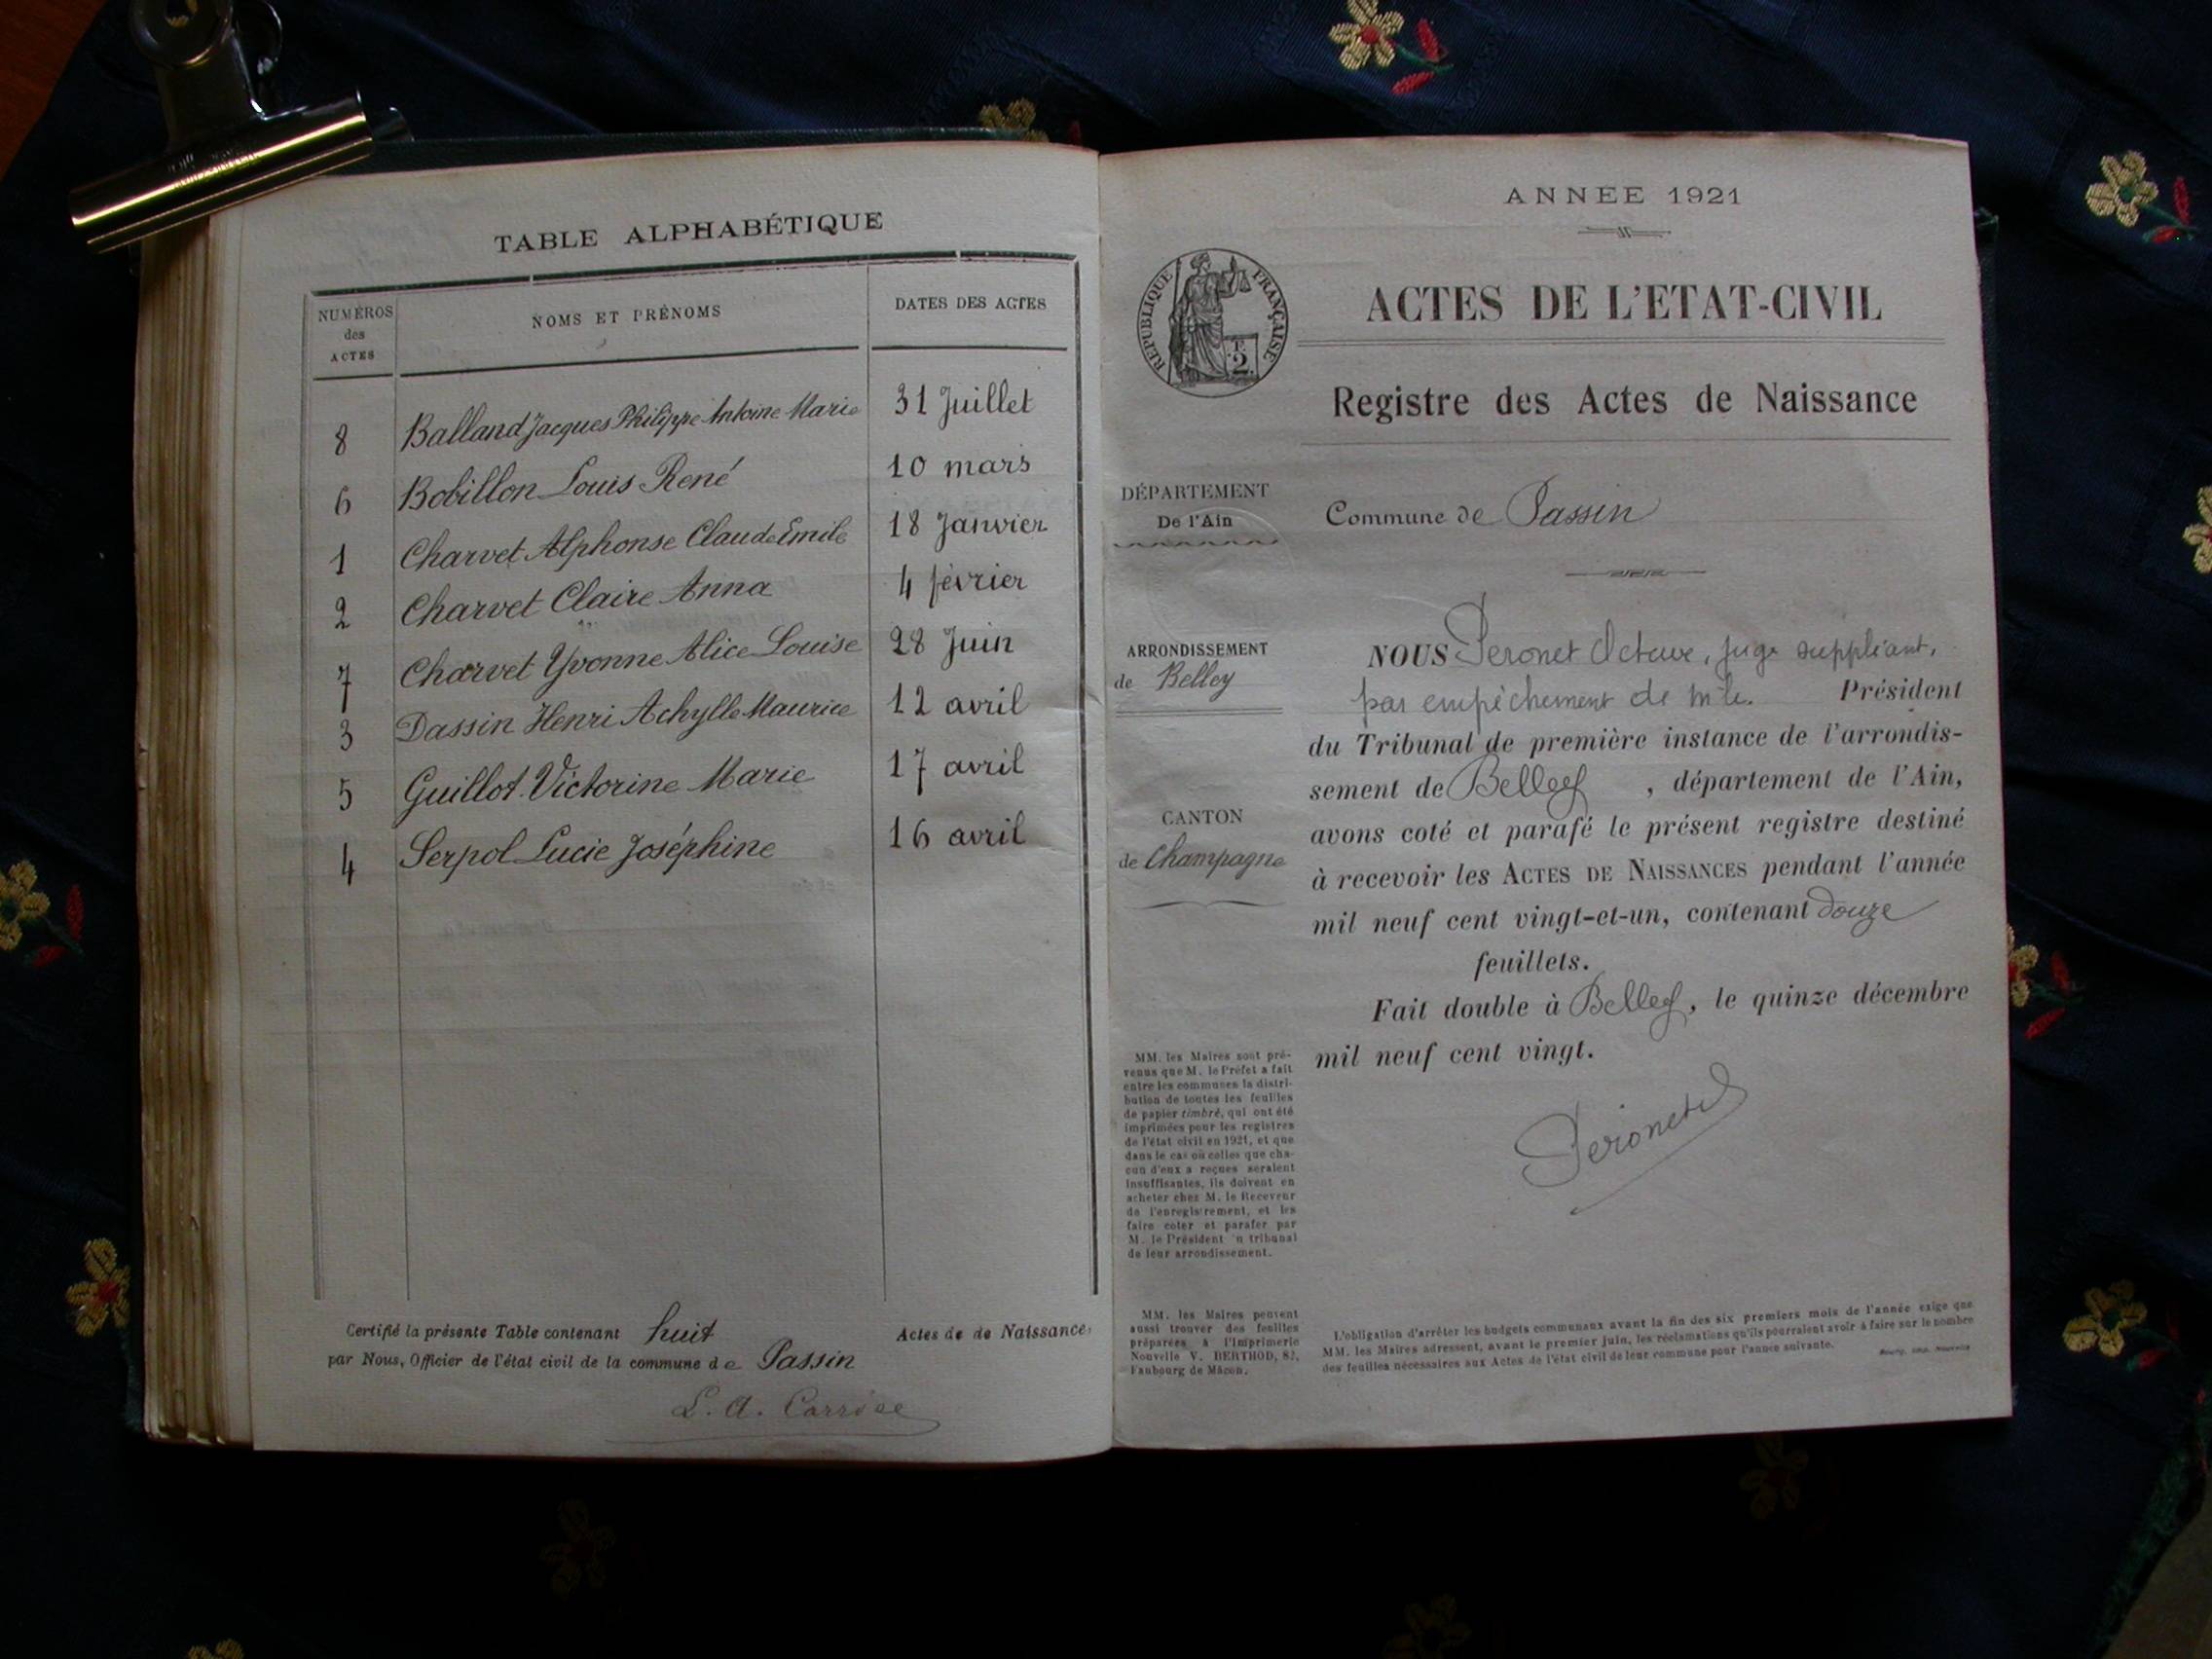 TABLE ALPHABÉTIQUE
NUMÉROS
des
ACTES
NOMS ET PRÉNOMS
DATES DES ACTES
8 Balland Jacques Philippe Antoine Marie 31 Juillet
6 Bobillon Louis René 10 mars
1 Charvet Alphonse Claude Emile 18 Janvier
2 Charvet Claire Anna 4 février
7 Charvet Yvonne Alice Louise 28 Juin
3 Dassin Henri Achylle Maurice 12 avril
5 Guillot Victorine Marie 17 avril
4 Serpol Lucie Joséphine 16 avril
Certifié la présente Table contenant huit Actes de de Naissance
par Nous, Officier de l'état civil de la commune de Passin
L. A.
ANNÉE 1921
RÉPUBLIQUE FRANÇAISE
2
ACTES DE L'ETAT-CIVIL
Registre des Actes de Naissance
DÉPARTEMENT
De l'Ain
Commune de Passin
ARRONDISSEMENT
de Belley
CANTON
de Champagne
NOUS Peronet Octave, juge suppléant,
par empêchement de Mr le. Président
du Tribunal de première instance de l'arrondis-
sement de Belley, département de l'Ain,
avons coté et parafé le présent registre destiné
à recevoir les ACTES DE NAISSANCES pendant l'année
mil neuf cent vingt-et-un, contenant douze
feuillets.
Fait double à Belley, le quinze décembre
mil neuf cent vingt.
Peronet
MM. les Maires sont pré-
venus que M. le Préfet a fait
entre les communes la distri-
bution de toutes les feuilles
de papier timbré, qui ont été
imprimées pour les registres
de l'état civil en 1921, et que
dans le cas où celles que cha-
cun d'eux a reçues seraient
insuffisantes, ils doivent en
acheter chez M. le Receveur
de l'enregistrement, et les
faire coter et parafer par
M. le Président u tribunal
de leur arrondissement.
MM. les Maires peuvent
aussi trouver des feuilles
préparées à l'Imprimerie
Nouvelle V. BERTHOD, 82,
Faubourg de Mâcon.
L'obligation d'arrêter les budgets communaux avant la fin des six premiers mois de l'année exige que
MM. les Maires adressent, avant le premier juin, les réclamations qu'ils pourraient avoir à faire sur le nombre
des feuilles nécessaires aux Actes de l'état civil de leur commune pour l'année suivante.
Bourg, imp. Nouvelle